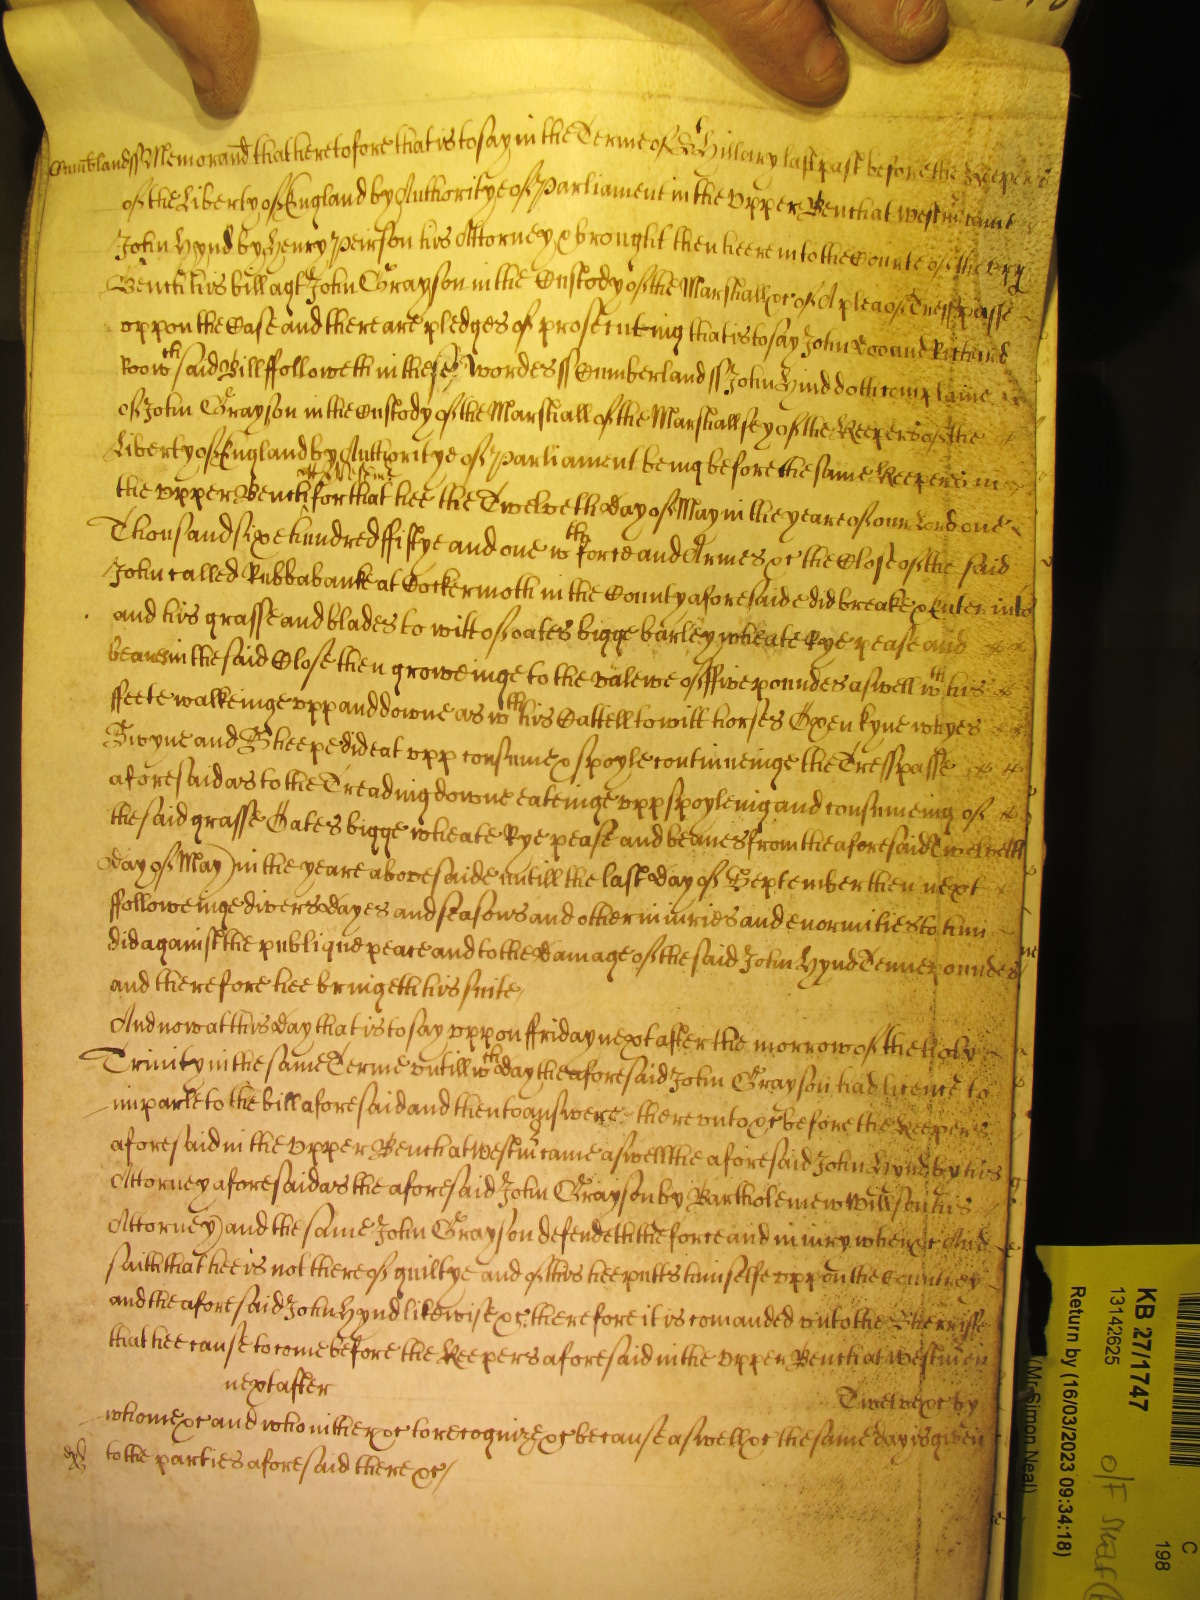 Cumbland ss Memorand that heretofore that is to say in the Terme of St Hillary last past before the Keepers
of the Liberty of England by Authoritye of Parliament in the Upper Bench at Westm came
John Hynd by Henry Peirson his Attorney & brought then heere into the Courte of the upp
Bench his bill agt John Grayson in the Custody of the Marshall &c of A plea of Tresspasse
uppon the Case and there are pledges of prosecuting that is to say John Doo and Richard
Roo wth said Bill ffolloweth in these wordes ss Cumberland ss John Hind doth complaine
of John Grayson in the Custody of the Marshall of the Marshallsey of the Keepers of the
Liberty of England by Authoritye of Parliament being before the same Keepers in
the Upper Bench att Westm for that hee the Twelveth day of May in the yeare of our Lord one
Thousand sixe hundred ffiftye and one wth force and Armes &c the Close of the said
John called Rubbabanke at Cockermoth in the County aforesaide did breake & Enter into
and his grasse and blades to witt of oates bigge barley wheate Rye pease and
beanes in the said Close then groweinge to the valewe of ffive poundes aswell wth his
ffeete walkeinge upp and downe as wth his Cattell to witt horses Oxen kyne whyes
Swyne and Sheepe did eat upp consume & spoyle continueinge the Tresspasse
aforesaid as to the Treading downe eateinge upp spoyleing and consumeing of
the said grasse Oates bigge wheate Rye pease and beanes from the aforesaid Twelveth
day of May in the yeare abovesaide untill the last day of September then next
ffolloweinge divers dayes and seasons and other iniuries and enormities to him
did against the publique peace and to the damage of the said John Hynd Tenne poundes
and therefore hee bringeth his suite
And now at this day that is to say uppon ffriday next after the morrow of the holy
Trinity in the same Terme untill wth day the aforesaid John Grayson had licence to
imparle to the bill aforesaid and then to answere thereunto &c before the Keepers
aforesaid in the Upper Bench at Westm came aswell the aforesaid John Hynd by his
Attorney aforesaid as the aforesaid John Grayson by Bartholemew Willson his
Attorney and the same John Grayson defendeth the force and iniury when &c And
saith that hee is not thereof guiltye and of this hee putts himselfe uppon the Countrey
and the aforesaid John Hynd likewise &c therefore it is comanded unto the Sherriffe
that hee cause to come before the Keepers aforesaid in the Upper Bench at Westm
next after Twelve &c by
whome &c and who neither &c to recognize &c because aswell &c the same day is given
to the parties aforesaid there &c
KB 27/1747
13142625
Return by (16/03/2023 09:34:18)
(Mr Simon Neal)
C
198
O/F Shelf